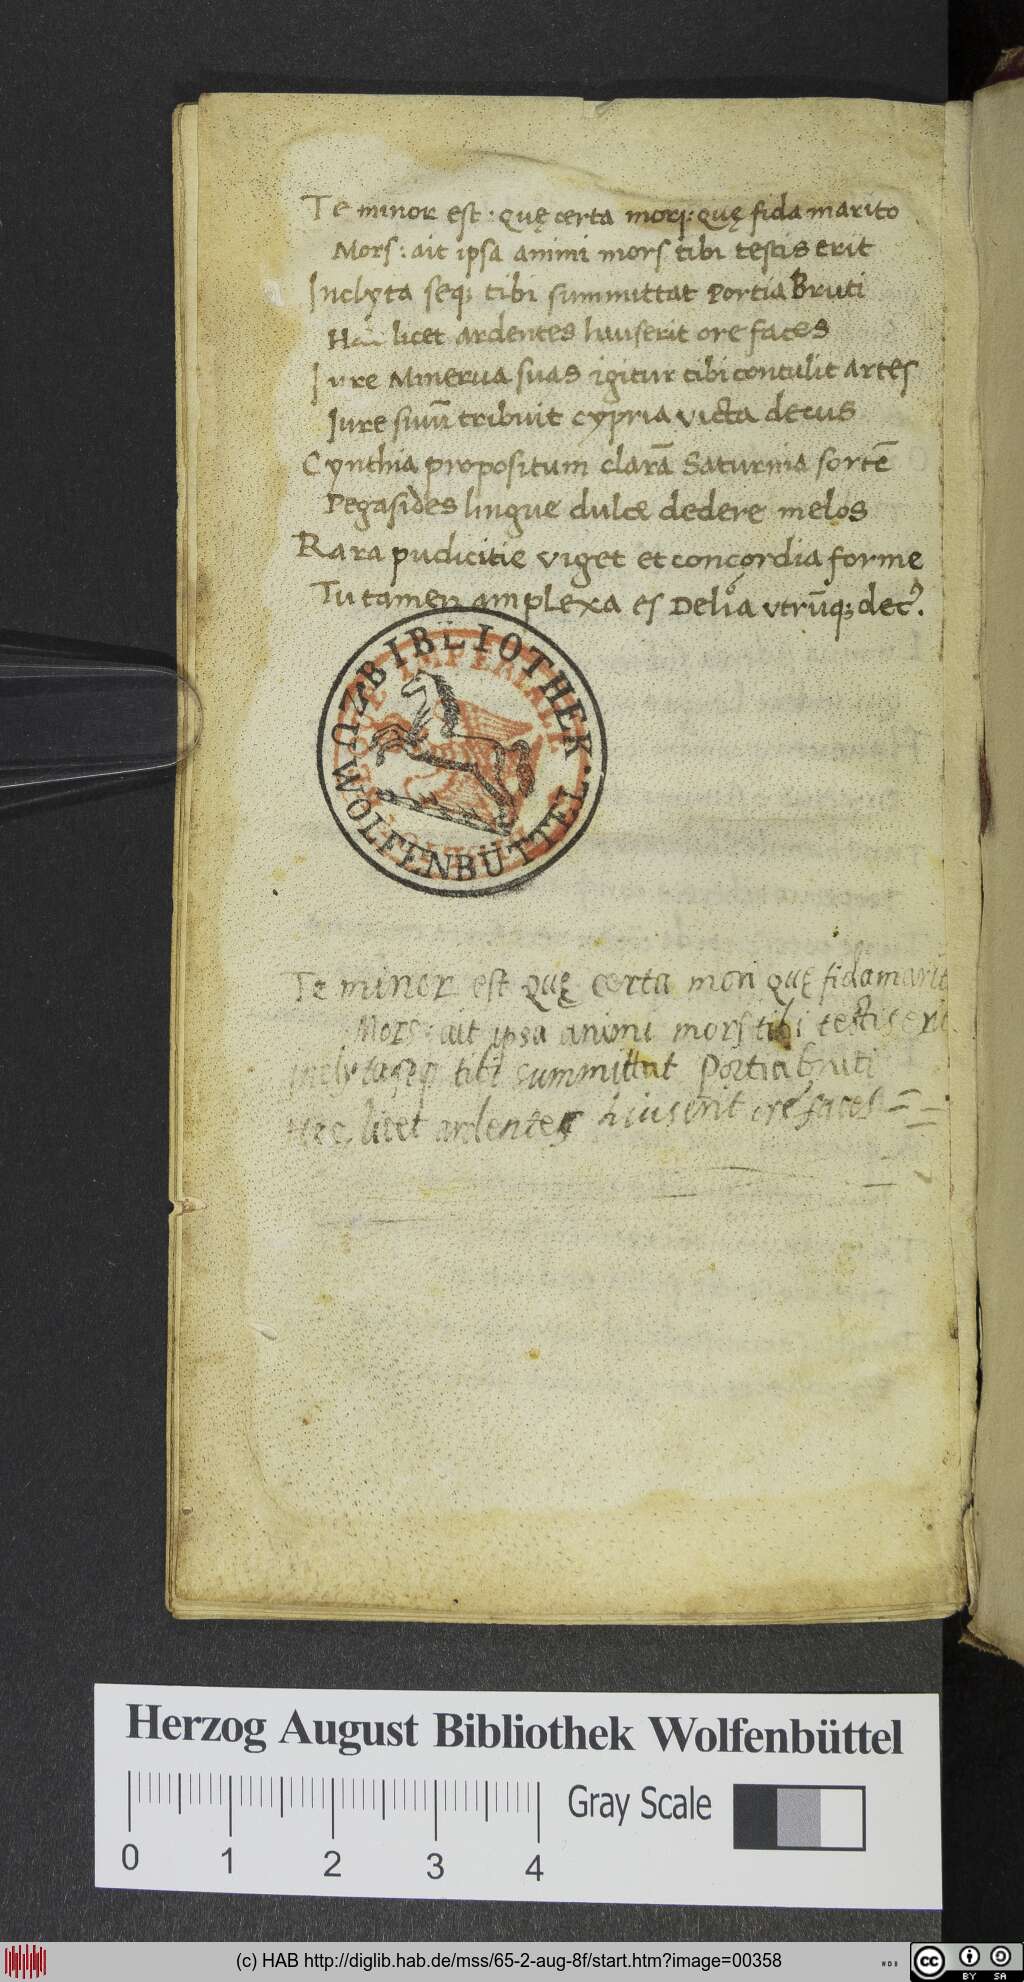 Te minor est: quę certa mori: quę fida marito
Mors: ait ipsa animi mors tibi testis erit
Inclyta seq; tibi summittat Portia Bruti
licet ardentes hauserit ore faces
Jure Minerva suas igitur tibi contulit artes
Jure suũ tribuit cypria victa decus
Cynthia propositum clarã Saturnia sortẽ
Pegasides lingue dulce dedere melos
Rara pudicitie viget et concordia forme
Tu tamen amplexa es Delia vtrũq; dec⁹.
BIBLIOTHEK
WOLFENBÜTTEL.
Te minor est quę certa mori quę fida marit
Mors: ait ipsa animi mors tibi testis erit
inclyta seq tibi summittat Portia bruti
Hec licet ardentes hauserit ore faces
Herzog August Bibliothek Wolfenbüttel
Gray Scale
0 1 2 3 4
(c) HAB http://diglib.hab.de/mss/65-2-aug-8f/start.htm?image=00358
WDB
cc BY SA